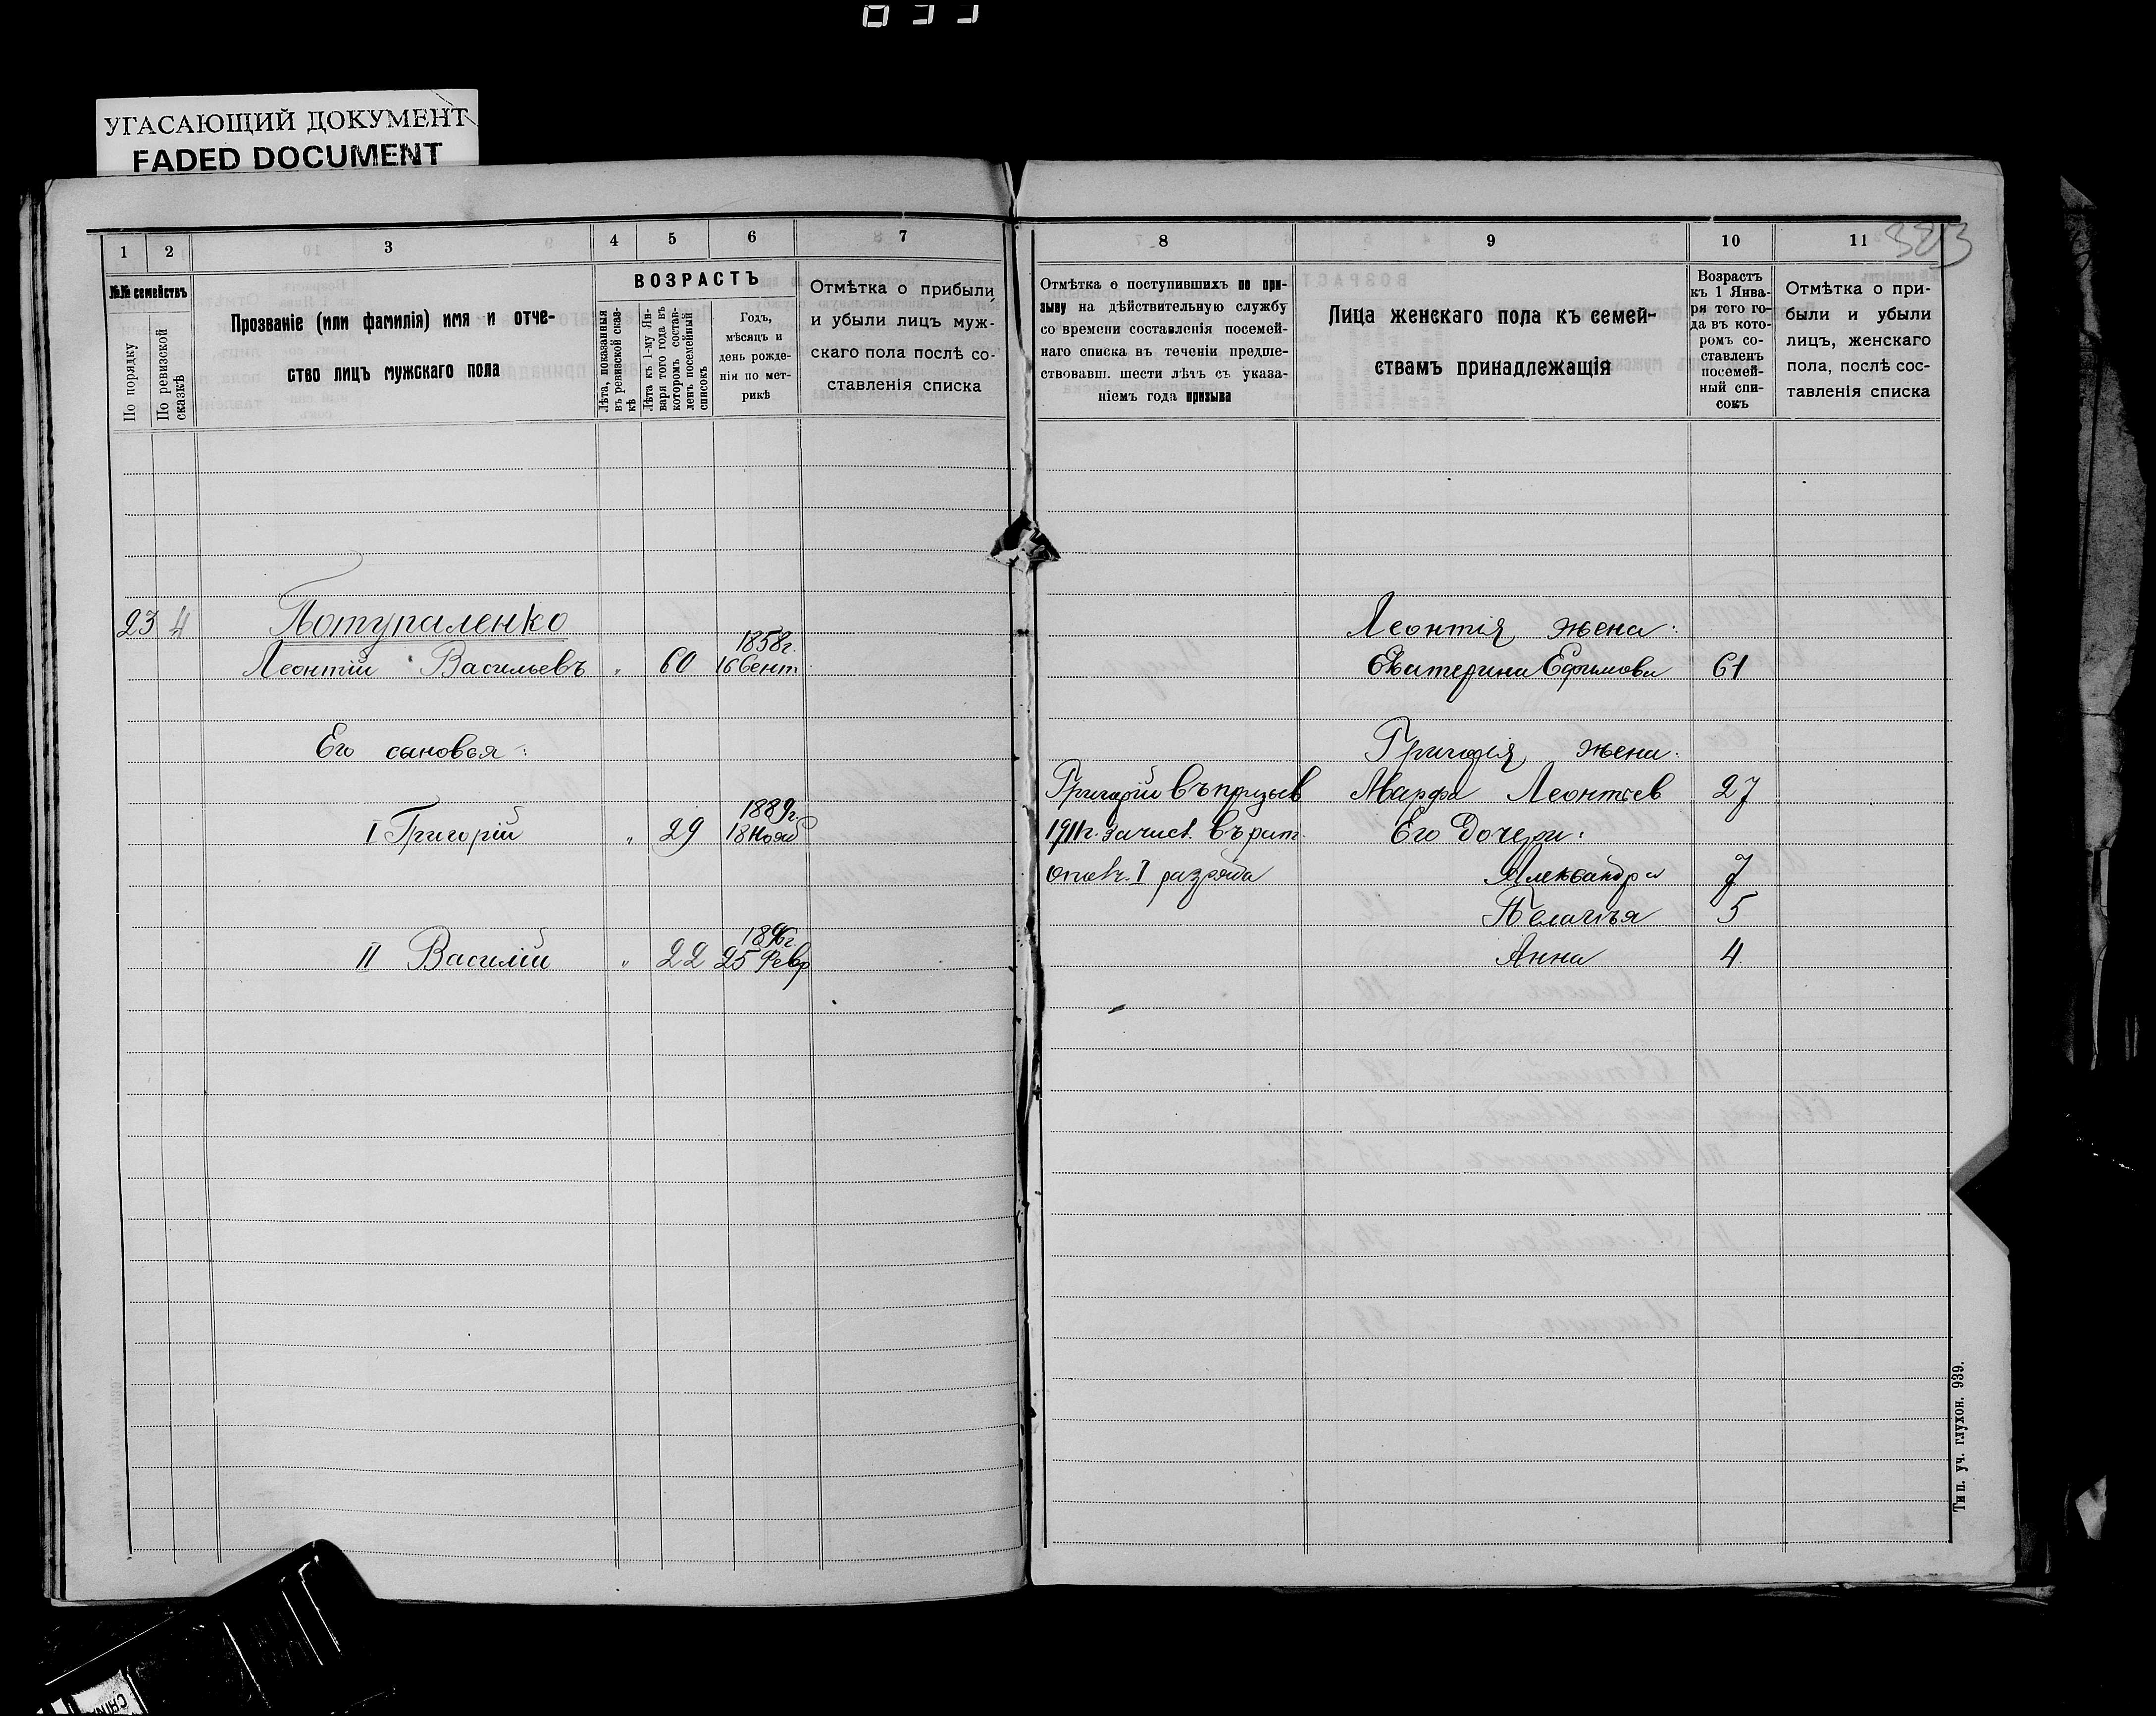 УГАСАЮЩИЙ ДОКУМЕНТ
FADED DOCUMENT
1 2 3 4 5 6 7
№№ семействъ
По порядку
По ревизской сказкѣ
Прозваніе (или фамилія) имя и отче-
ство лицъ мужскаго пола
ВОЗРАСТЪ
Лѣта, показанныя
въ ревизской сказ-
кѣ
Лѣта къ 1-му Ян-
варя того года въ
которомъ состав-
ленъ посемейный
списокъ
Годъ,
мѣсяцъ и
день рожде-
нія по мет-
рикѣ
Отмѣтка о прибыли
и убыли лицъ муж-
скаго пола послѣ со-
ставленія списка
23 4 Потупаленко
1858г.
Леонтій Васильевъ " 60 16 Сент.
Его сыновья:
1889г.
I Григорій " 29 18 Нояб
1896г.
II Василій " 22 25 Февр
8 9 10 11
323
Отмѣтка о поступившихъ по при-
зыву на дѣйствительную службу
со времени составленія посемей-
наго списка въ теченіи предше-
ствовавш. шести лѣтъ съ указа-
ніемъ года призыва
Лица женскаго пола къ семей-
ствамъ принадлежащія
Возрастъ
къ 1 Янва-
ря того го-
да въ кото-
ромъ со-
ставленъ
посемей-
ный спи-
сокъ
Отмѣтка о при-
были и убыли
лицъ, женскаго
пола, послѣ сос-
тавленія списка
Леонтія жена:
Екатерина Ефимова 61
Григорія жена:
Григорій въ призыв Марфа Леонтьев 27
1911г. зачисл. въ рат. Его дочери:
ополч. I разряда Александра 7
Пелагія 5
Анна 4
Тип. уч. глухон. 939.